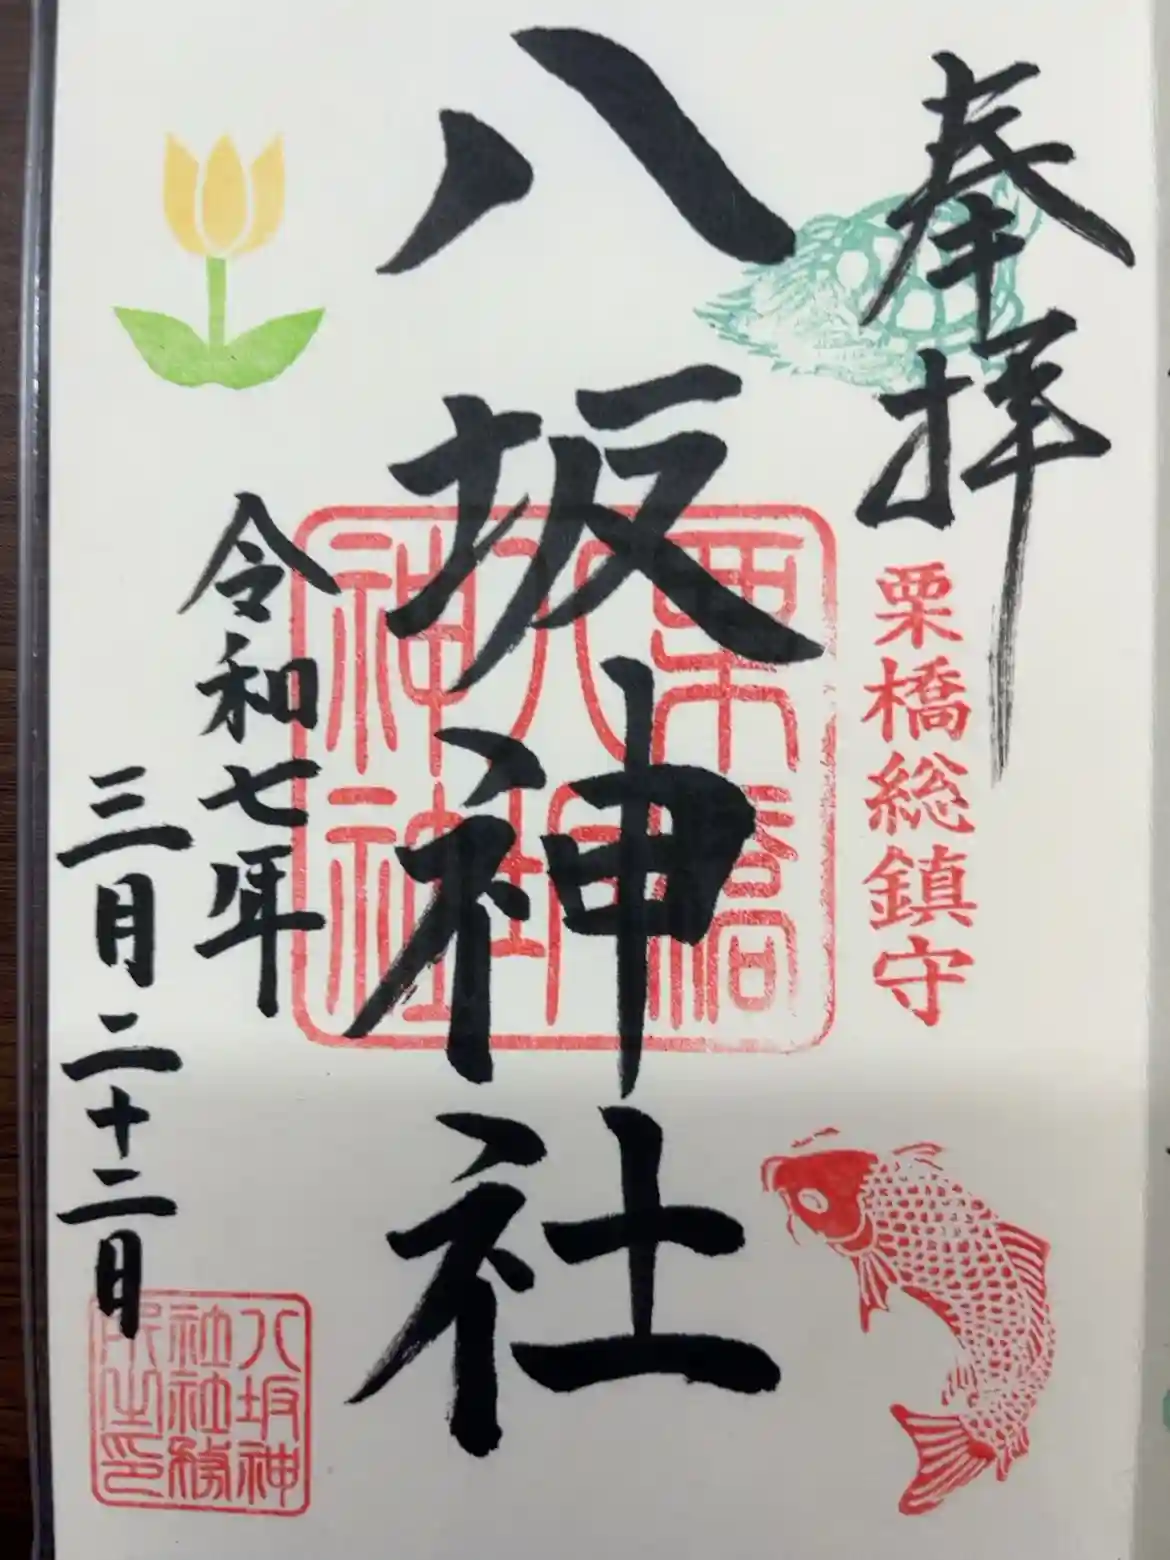 奉拝
栗橋総鎮守
八坂神社
栗橋
八坂
神社
令和七年
三月二十二日
八坂神
社社務
所之印